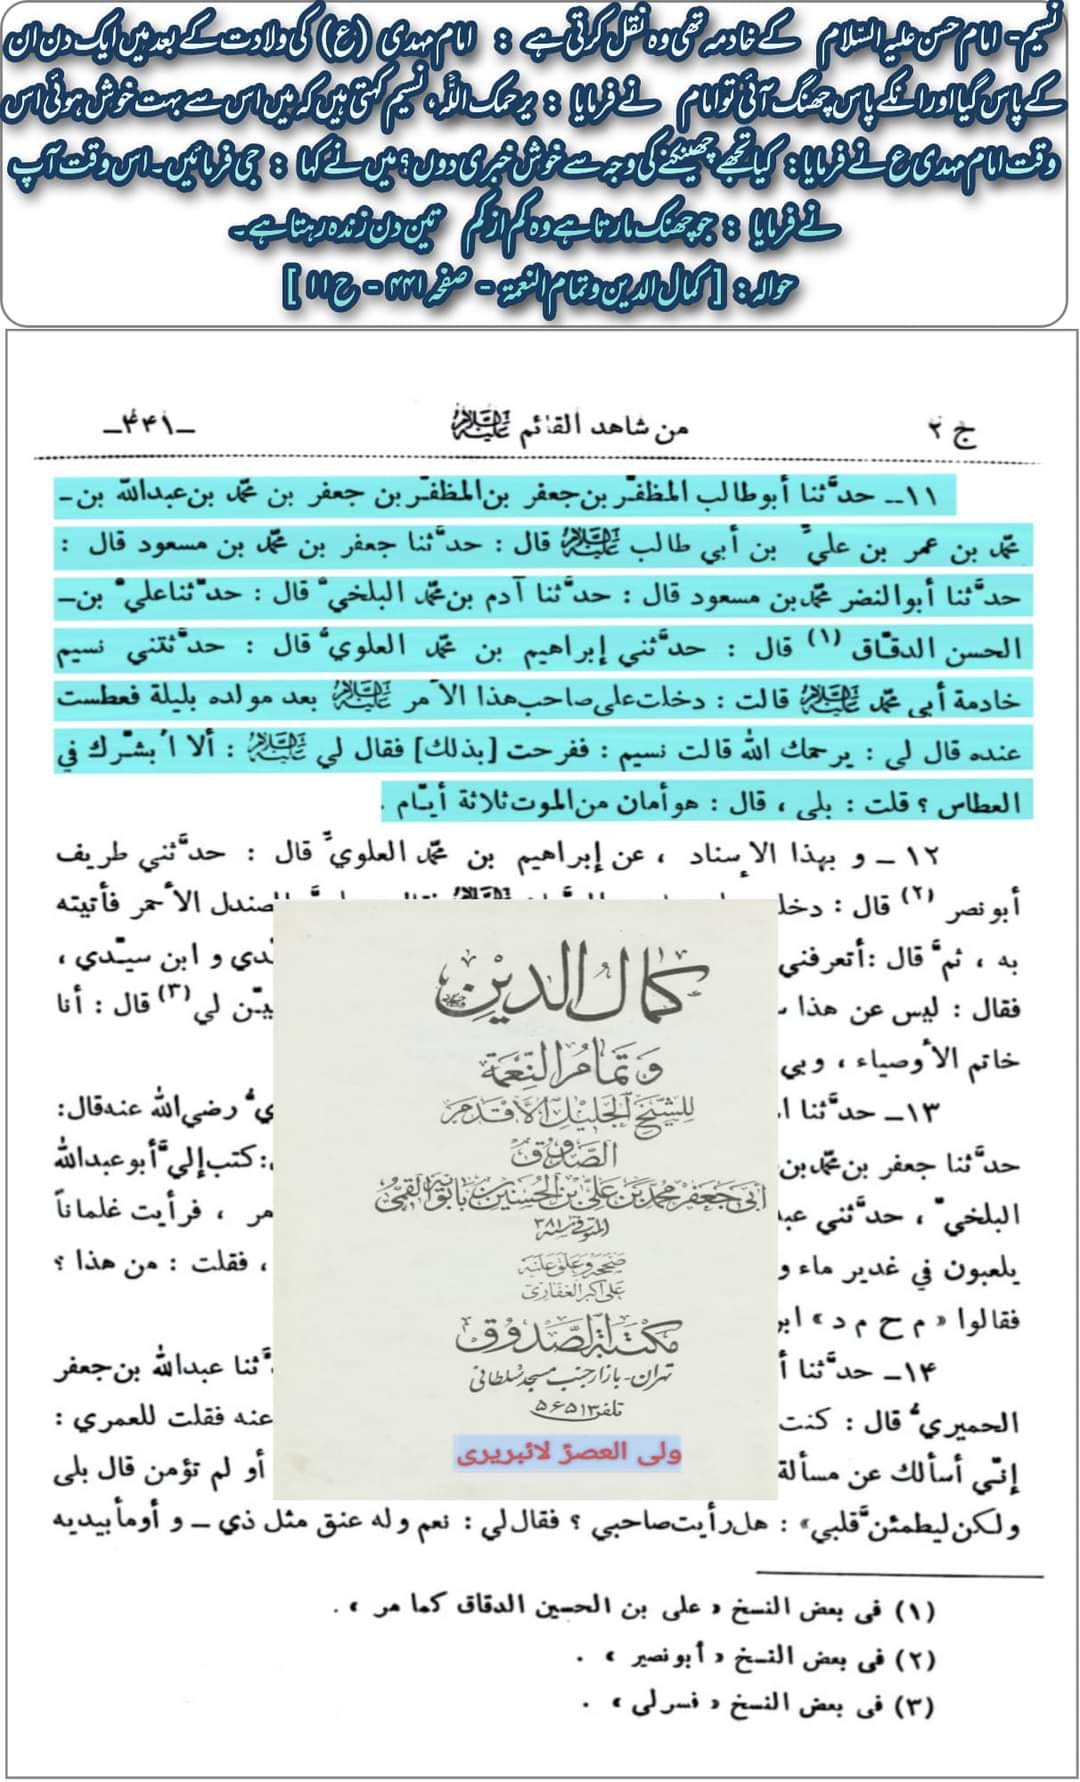 نسیم - امام حسن علیہ السّلام کے خادمہ تھی وہ نقل کرتی ہے : امام مہدی (ع) کی ولادت کے بعد میں ایک دن ان
کے پاس گیا اور انکے پاس چھنگ آئی تو امام نے فرمایا : یرحمک اللّٰہ، نسیم کہتی ہیں کہ میں اس سے بہت خوش ہوئی اس
وقت امام مہدی ع نے فرمایا : کیا تجھے چھینکنے کی وجہ سے خوش خبری دوں؟ میں نے کہا : جی فرمائیں ۔ اس وقت آپ
نے فرمایا : جو چھنک مارتا ہے وہ کم از کم تین دن زندہ رہتا ہے ۔
حوالہ : [ کمال الدین و تمام النعمۃ - صفحہ ۴۴۱ - ح ۱۱ ]
ج ۲ من شاهد القائم عليه السلام ـ۴۴۱ـ
۱۱ـ حدَّثنا أبوطالب المظفّر بن جعفر بن المظفّر بن جعفر بن محمّد بن عبدالله بن ـ
محمّد بن عمر بن عليِّ بن أبي طالب عليه السلام قال : حدَّثنا جعفر بن محمّد بن مسعود قال :
حدَّثنا أبوالنضر محمّدبن مسعود قال : حدَّثنا آدم بن محمّد البلخيُّ قال : حدَّثناعليُّ بن ـ
الحسن الدقّاق (۱) قال : حدَّثني إبراهيم بن محمّد العلويُّ قال : حدَّثتني نسيم
خادمة أبي محمّد عليه السلام قالت : دخلت على صاحب هذا الأمر عليه السلام بعد مولده بليلة فعطست
عنده قال لي : يرحمك الله قالت نسيم : ففرحت [بذلك] فقال لي عليه السلام : ألا اُبشّرك في
العطاس ؟ قلت : بلى ، قال : هو أمان من الموت ثلاثة أيّام .
۱۲ ـ و بهذا الإسناد ، عن إبراهيم بن محمّد العلويِّ قال : حدَّثني طريف
أبونصر (۲) قال : دخلت الصندل الأحمر فأتيته
به ، ثمَّ قال : أتعرفني سيّدي و ابن سيّدي ،
فقال : ليس عن هذا فبيّن لي (۳) قال : أنا
خاتم الأوصياء ، وبي
۱۳ـ حدَّثنا رضي الله عنه قال :
حدَّثنا جعفر بن محمّدبن : كتب إليَّ أبوعبدالله
البلخيُّ ، حدَّثني ، فرأيت غلماناً
يلعبون في غدير ماء و ، فقلت : من هذا ؟
فقالوا « م ح م د » ابن
۱۴ـ حدَّثنا حدَّثنا عبدالله بن جعفر
الحميريُّ قال : كنت عنه فقلت للعمري :
إنّي أسألك عن مسألة أو لم تؤمن قال بلى
ولكن ليطمئنَّ قلبي» : هل رأيت صاحبي ؟ فقال لي : نعم وله عنق مثل ذي ـ و أومأ بيديه
(۱) في بعض النسخ « على بن الحسين الدقاق كما مر » .
(۲) في بعض النسخ « أبونصير » .
(۳) في بعض النسخ « فسر لي » .
كمال الدين
وتمام النعمة
للشيخ الجليل الأقدم
الصدوق
أبي جعفر محمد بن علي بن الحسين بن بابويه القمي
المتوفى سنة ۳۸۱
صححه وعلق عليه
علي اكبر الغفاري
مكتبة الصدوق
تهران - بازار جنب مسجد سلطانى
تلفن ۵۶۵۱۳
ولی العصرؑ لائبریری